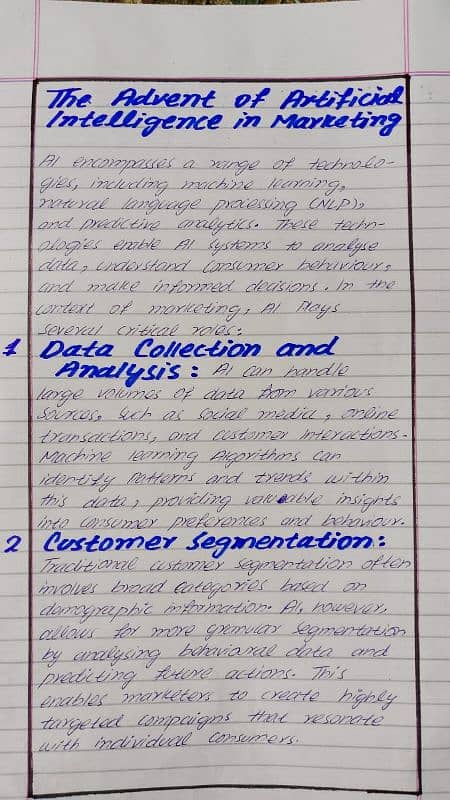 The Advent of Artificial
Intelligence in Marketing
AI encompasses a range of technolo-
gies, including machine learning,
natural language processing (NLP),
and predictive analytics. These techn-
ologies enable AI systems to analyse
data, understand consumer behaviour,
and make informed decisions. In the
context of marketing, AI Plays
several critical roles:
1 Data Collection and
Analysis: AI can handle
large volumes of data from various
Sources, such as social media, online
transactions, and customer interactions.
Machine learning Algorithms can
identify Patterns and trends within
this data, providing valueable insights
into consumer preferences and behaviour.
2 Customer Segmentation:
Traditional customer segmentation often
involves broad categories based on
demographic information. AI, however,
allows for more granular segmentation
by analysing behavioral data and
predicting future actions. This
enables marketers to create highly
targeted campaigns that resonate
with individual consumers.